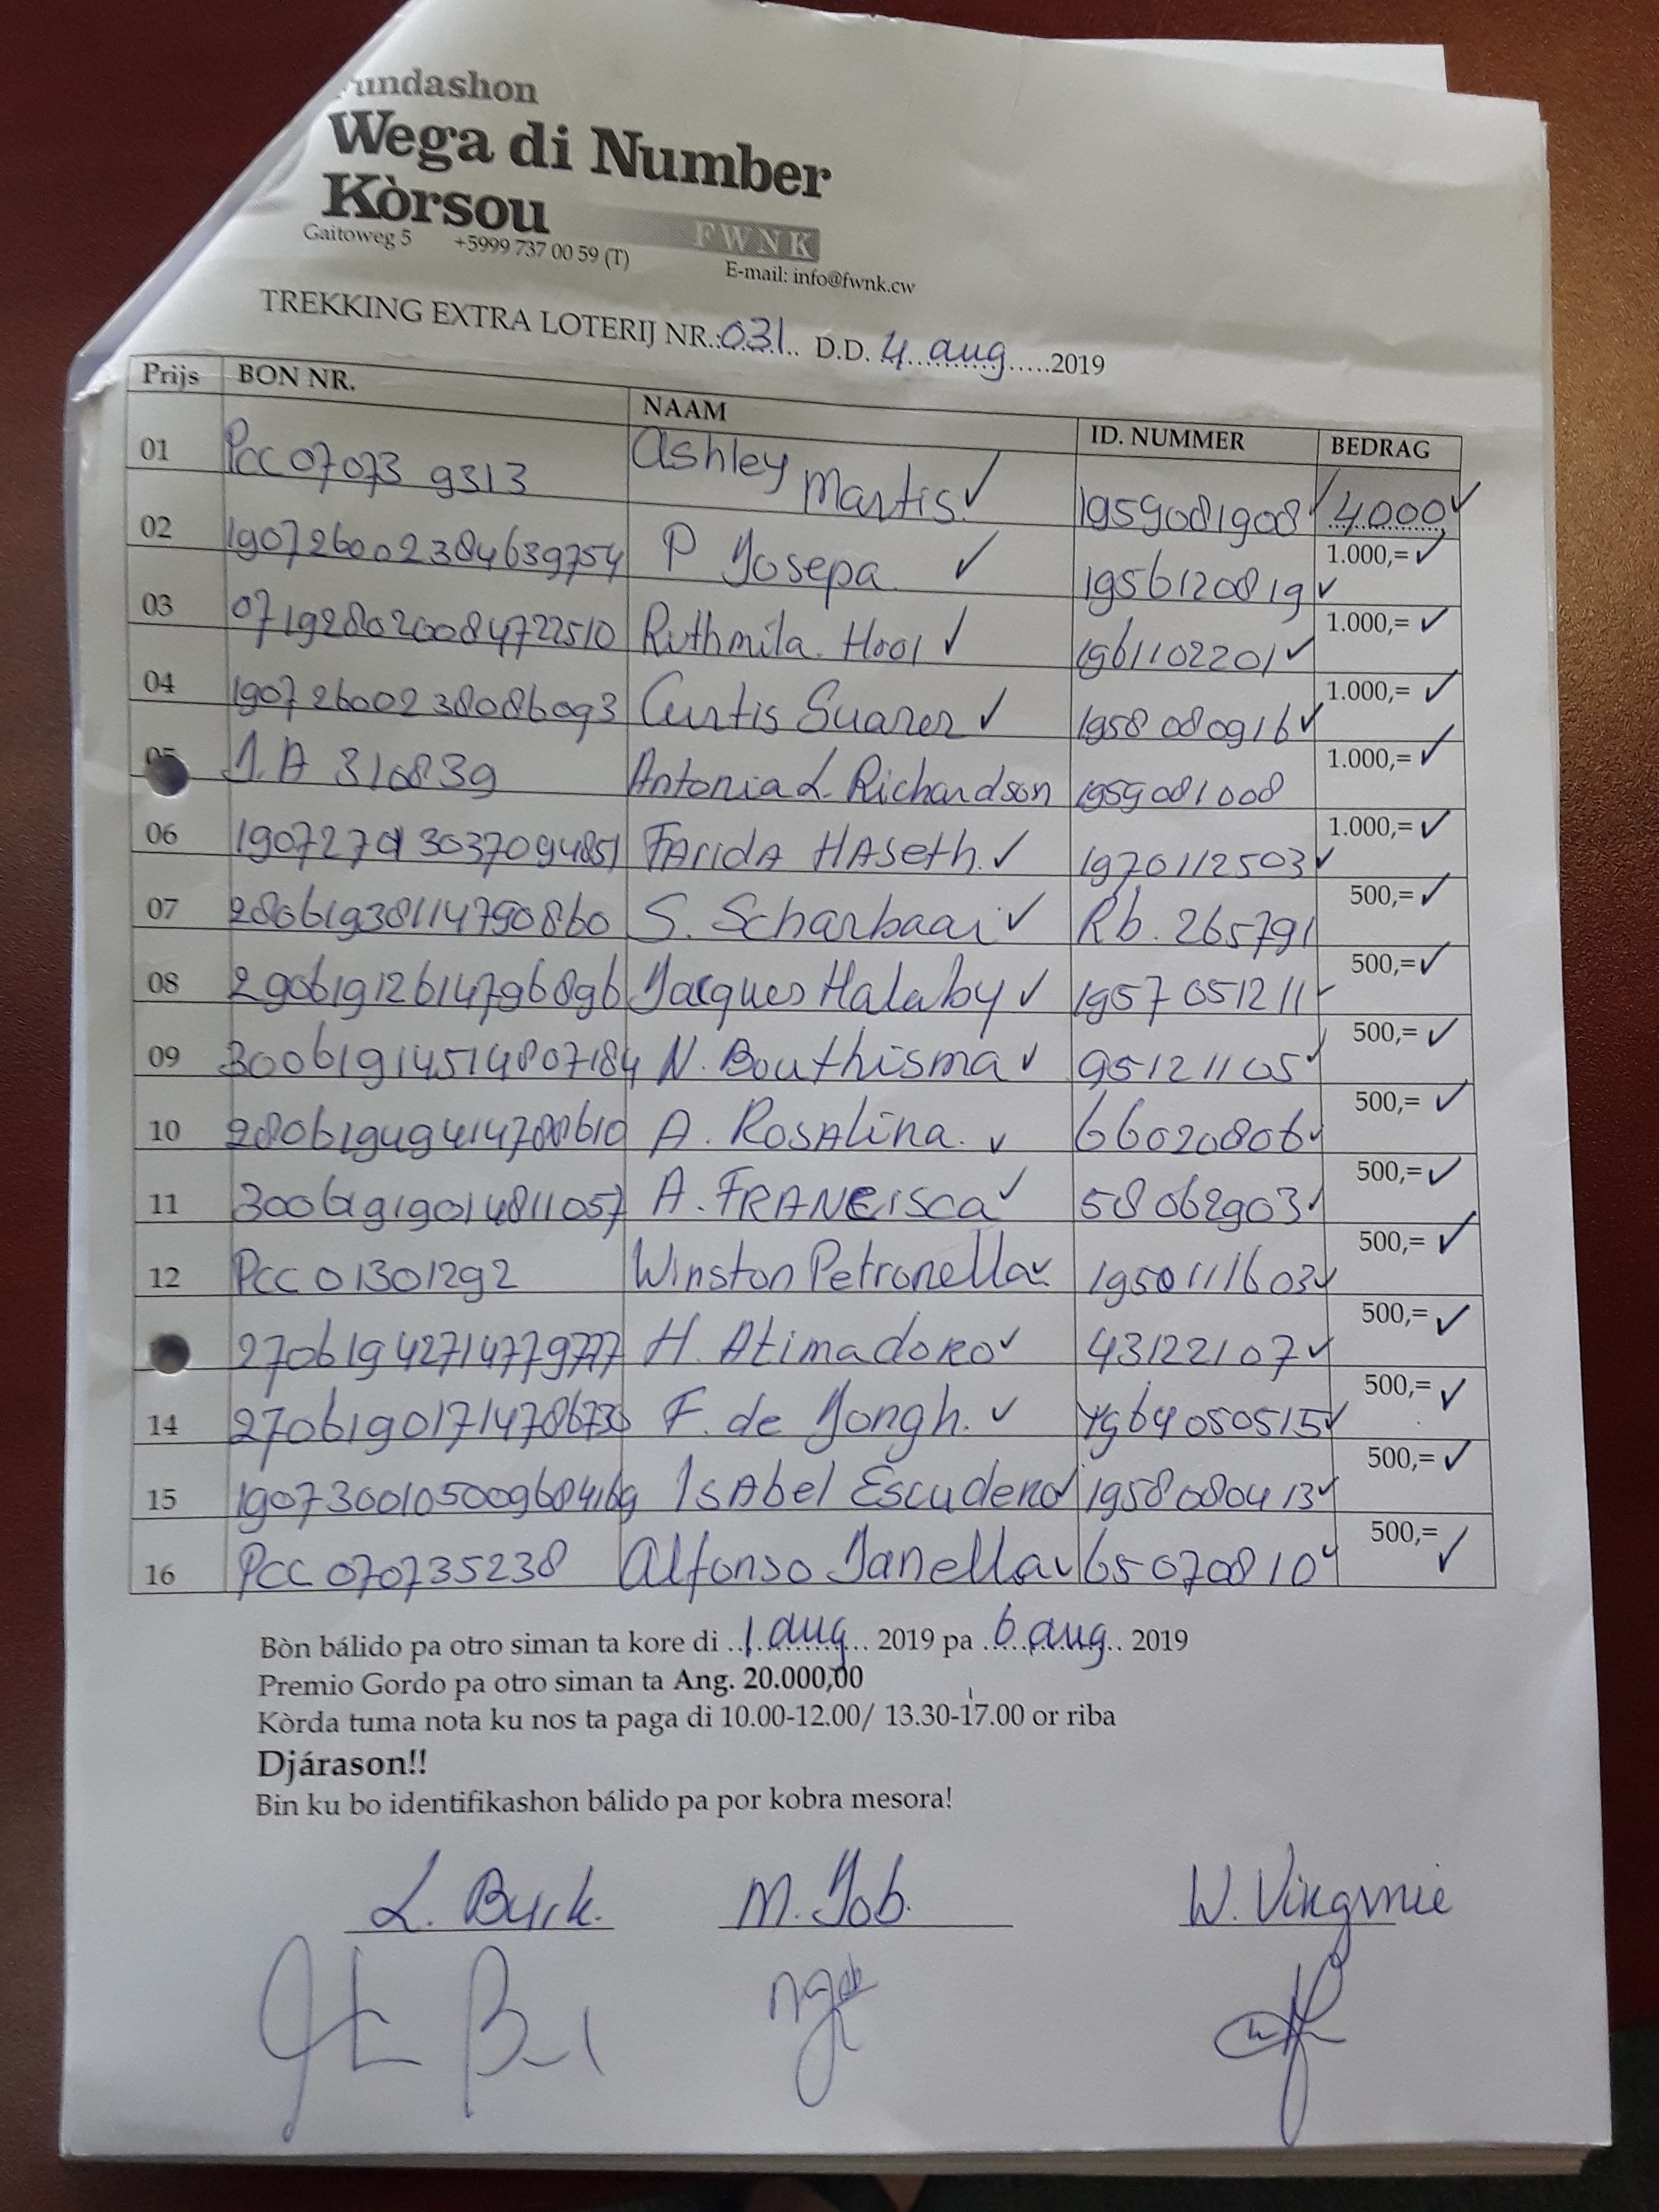 undashon
Wega di Number
Kòrsou
FWNK
Gaitoweg 5 +5999 737 00 59 (T) E-mail: info@fwnk.cw
TREKKING EXTRA LOTERIJ NR.: 031 D.D. 4 aug 2019
Prijs BON NR. NAAM ID. NUMMER BEDRAG
01 PCC 07073 9313 Ashley Martis ✓ 1959081908 ✓ 4.000 ✓
02 190726002384639754 P Josepa ✓ 1956120819 ✓ 1.000,= ✓
03 071928020084722510 Ruthmila Hooi ✓ 1961102201 ✓ 1.000,= ✓
04 19072600238086093 Curtis Suarez ✓ 1958080916 ✓ 1.000,= ✓
05 J.A 310839 Antonia L. Richardson 1959081008 1.000,= ✓
06 Farida Haseth ✓ 1970112503 ✓ 1.000,= ✓
07 28061938114790860 S. Scharbaai ✓ Rb. 265791 500,= ✓
08 29061912614796896 Jacques Halaby ✓ 1957051211 ✓ 500,= ✓
09 30061914514807184 N. Bouthisma ✓ 95121105 ✓ 500,= ✓
10 28061949414788610 A. Rosalina ✓ 66020806 ✓ 500,= ✓
11 30061919014811057 A. FRANCISCA ✓ 58062903 ✓ 500,= ✓
12 PCC 01301292 Winston Petronella ✓ 1950111603 ✓ 500,= ✓
27061942714779777 H. Atimadoro ✓ 43122107 ✓ 500,= ✓
14 27061901714786730 F. de Jongh. ✓ 1964050515 ✓ 500,= ✓
15 1907300105009684169 Isabel Escudero ✓ 1958080413 ✓ 500,= ✓
16 PCC 070735238 Alfonso Janella ✓ 65070810 ✓ 500,= ✓
Bòn bálido pa otro siman ta kore di 1 aug 2019 pa 6 aug 2019
Premio Gordo pa otro siman ta Ang. 20.000,00
Kòrda tuma nota ku nos ta paga di 10.00-12.00/ 13.30-17.00 or riba
Djárason!!
Bin ku bo identifikashon bálido pa por kobra mesora!
L. Burk. M. Job. W. Virginie